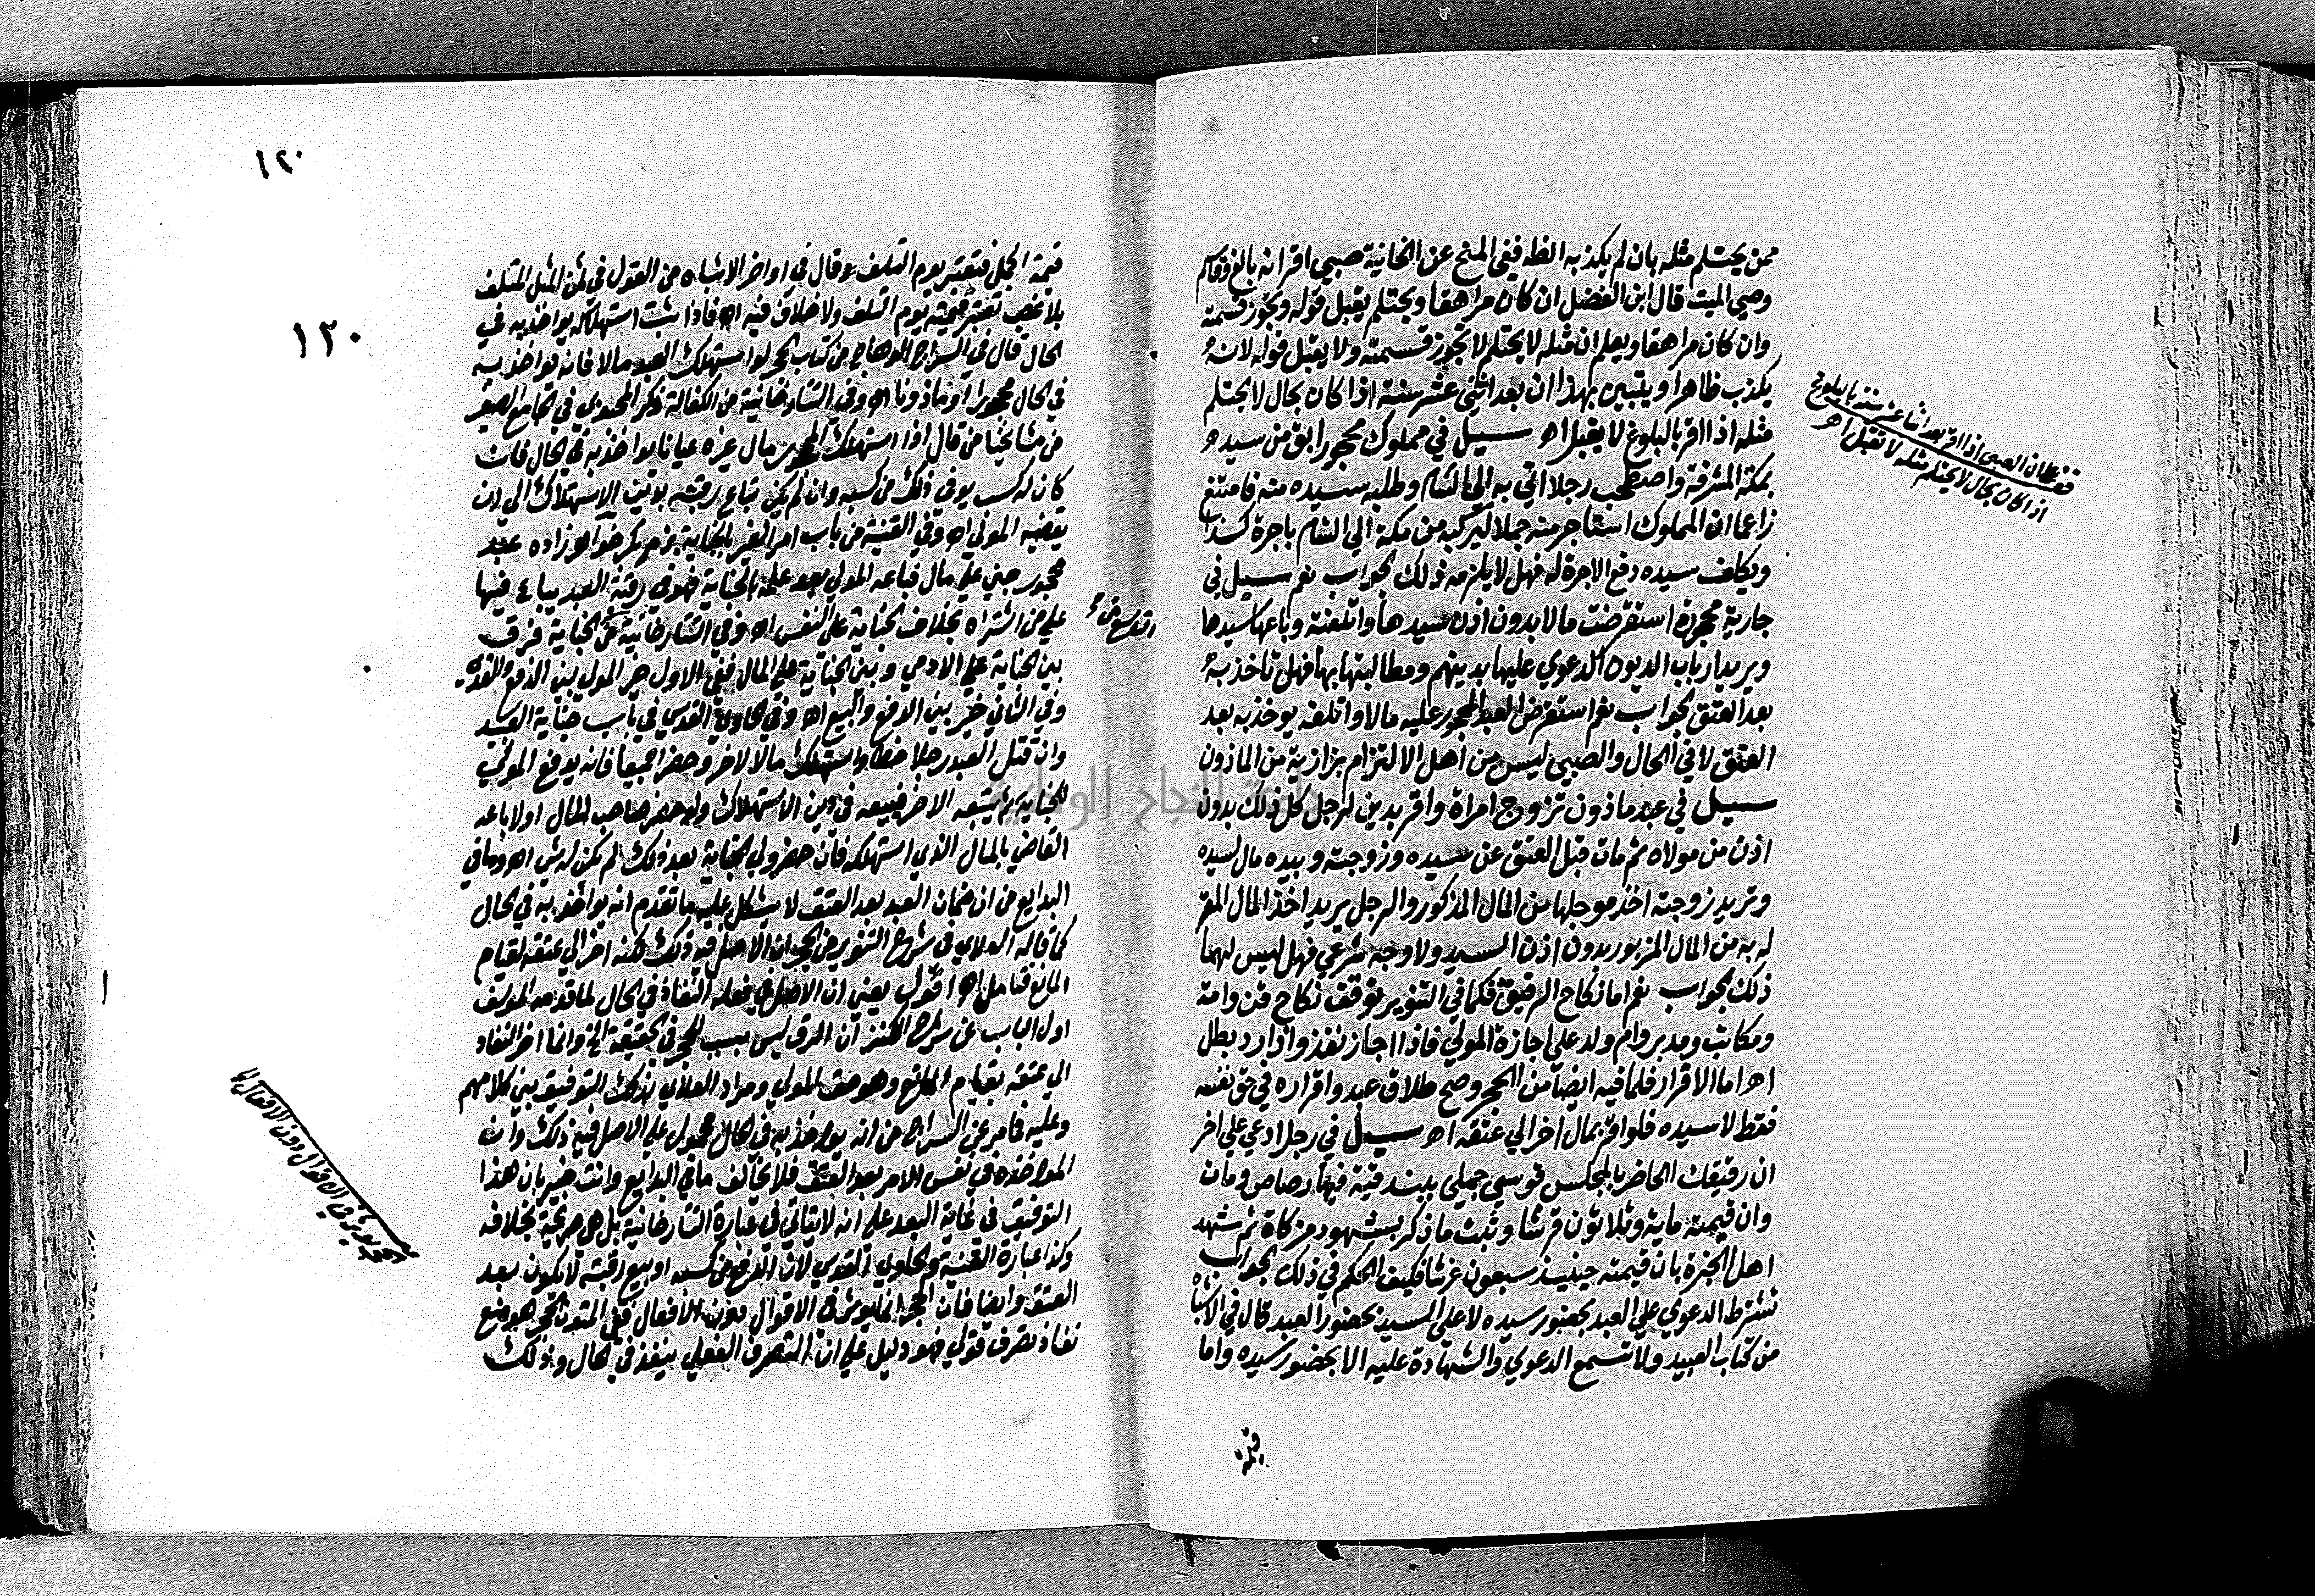 ممن يحتلم مثله بان لم يكذبه الظ ففي المنح عن الخانية صبي اقر انه بالغ وقاسم
وصي الميت قال ابن الفضل ان كان مراهقا ويحتلم يقبل قوله وتجوز قسمته
وان كان مراهقا ويعلم ان مثله لا يحتلم لا تجوز قسمته ولا يقبل قوله لانه
يكذب ظاهرا ويتبين بهذا ان بعد اثني عشر سنة اذا كان بحال لا يحتلم
مثله اذا اقر بالبلوغ لا يقبل اه سيل في مملوك محجور ابق من سيده
بمكة المشرفة واصطحب رجلا اتي به الي الشام وطلبه سيده منه فامتنع
زاعما ان المملوك استاجر منه جملا ليركبه من مكة الي الشام باجرة كذا
ويكلف سيده دفع الاجرة له فهل لا يلزمه ذلك الجواب نعم سيل في
جارية محجورة استقرضت مالا بدون اذن سيدها واتلفته وباعها سيدها
ويريد ارباب الديون الدعوي عليها بدينهم ومطالبتها بها فهل تاخذ به
بعد العتق الجواب نعم استقرض العبد المحجور عليه مالا واتلفه يوخذ به بعد
العتق لا في الحال والصبي ليس من اهل الالتزام بزازية من الماذون
سيل في عبد ماذون تزوج امراة واقر بدين لرجل كل ذلك بدون
اذن من مولاه ثم مات قبل العتق عن سيده وزوجته وبيده مال لسيده
وتريد زوجته اخذ موجلها من المال المذكور والرجل يريد اخذ المال المقر
له به من المال المزبور بدون اذن السيد ولا وجه شرعي فهل ليس لهما
ذلك الجواب نعم اما نكاح الرقيق فكما في التنوير توقف نكاح قن وامة
ومكاتب ومدبر وام ولد علي اجازة المولي فاذا اجاز نفذ واذا رد بطل
اه اما الاقرار فلما فيه ايضا من الحجر وصح طلاق عبد واقراره في حق نفسه
فقط لا سيده فلو اقر بمال اخر الي عتقه اه سيل في رجل ادعي علي اخر
ان رفيقك الحاضر بالمجلس قوسي جملي ببندقية فيها رصاص ومات
وان قيمته ماية وثلاثون قرشا وثبت ما ذكر بشهود مزكاة ثم شهد
اهل الخبرة بان قيمته حينيذ سبعون غرشا فكيف الحكم في ذلك الجواب
تشترط الدعوي علي العبد بحضور سيده لا علي السيد بحضور العبد قال في الاشباه
من كتاب العبيد ولا تسمع الدعوي والشهادة عليه الا بحضور سيده واما
قيمة
اذا كان بحال لا يحتلم مثله لا تقبل اه
١٢٠
١٢٠
قيمة الجمل فتعتبر يوم التلف وقال في اواخر الاشباه من القول في ثمن المثل المتلف
بلا غصب تعتبر قيمته يوم التلف ولا خلاف فيه اه فاذا ثبت استهلاكه يواخذ به في
الحال قال في السراج الوهاج من كتاب الحجر لو استهلك العبد مالا فانه يواخذ به
في الحال محجورا او ماذونا اه وفي التتارخانية من الكفالة ذكر المحبوبي في الجامع الصغير
من مشايخنا من قال اذا استهلك المحجور مال غيره عيانا يواخذ به في الحال فان
كان له كسب يوفي ذلك من كسبه وان لم يكن تباع رقبته بدين الاستهلاك الي ان
يقضيه المولي اه وفي القنية من باب امر الغير بالجناية برمز بكر خواهر زاده عبد
محجور جني علي مال فباعه المولي بعد علمه بالجناية فهو في رقبة العبد يباع فيها
علي من اشتراه بخلاف الجناية علي النفس اه وفي التتارخانية من الجناية فرق
بين الجناية علي الادمي وبين الجناية علي المال ففي الاول خير المولي بين الدفع والفداء
وفي الثاني خير بين الدفع والبيع اه وفي الحاوي القدسي في باب جناية العبد
وان قتل العبد رجلا خطا واستهلك مالا لاخر وحضرا جميعا فانه يدفع المولي
للجناية ثم يتبعه الاخر فيبيعه في دين الاستهلاك ولو حضر صاحب المال اولا باعه
القاضي بالمال الذي استهلكه فان حضر ولي الجناية بعد ذلك لم يكن له شي اه وما في
البدايع من ان ضمان العبد بعد العتق لا يشكل عليه ما تقدم انه يواخذ به في الحال
كما قاله العلاي في شرح التنوير من الحجر ان الاصل فيه ذلك لكنه اخر الي عتقه لقيام
المانع فتامل اه اقول يعني ان الاصل في فعله النفاذ في الحال لما قدمه المولف
اول الباب عن شرح الكنز ان الرق ليس بسبب للحجر في الحقيقة الخ وانما اخر النفاذ
الي عتقه لقيام المانع وهو حق المولي ومراد العلاي بذلك التوفيق بين كلامهم
وعليه فما مر عن السراج من انه يواخذ به في الحال محمول علي الاصل فيه ذلك وان
المواخذة في نفس الامر بعد العتق فلا يخالف ما في البدايع وانت خبير بان هذا
التوفيق في غاية البعد علي انه لا يتاتي في عبارة التتارخانية بل هي صريحة بخلافه
وكذا عبارة القنية والحاوي القدسي لان الدفع من كسبه او بيع رقبته لا يكون بعد
العتق وايضا فان الحجر انما يوثر في الاقوال دون الافعال ففي المتون الحجر هو منع
نفاذ تصرف قولي فهو دليل علي ان التصرف الفعلي ينفذ في الحال وذلك